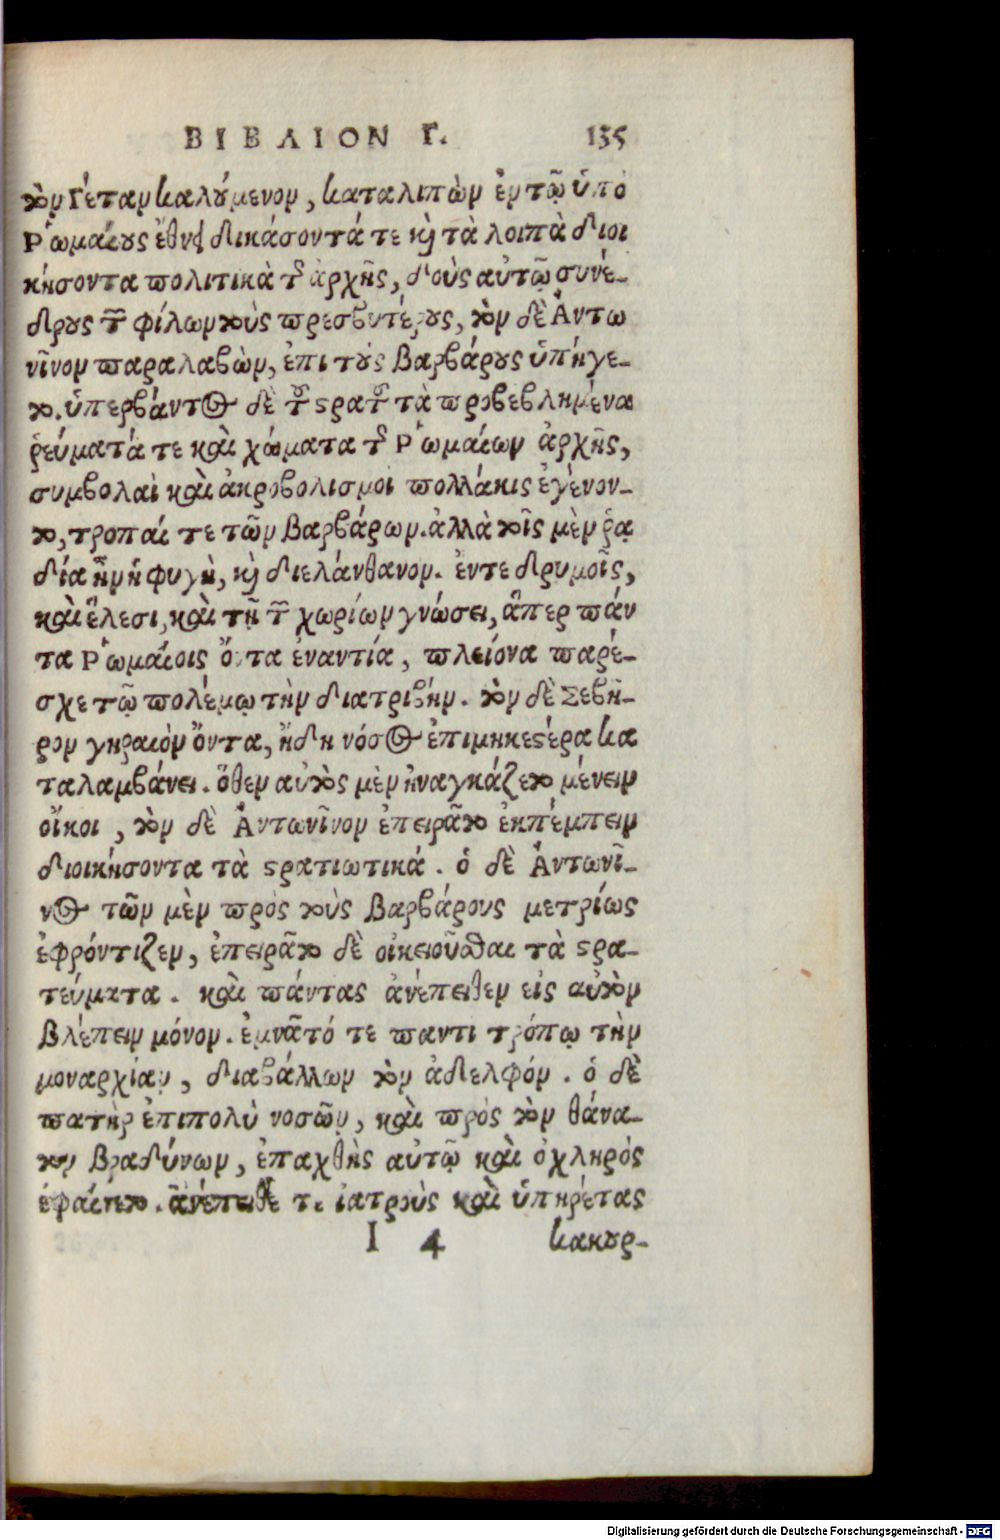 ΒΙΒΛΙΟΝ Γ. 135
τὸν Γέταν καλούμενον, καταλιπὼν ἐν τῷ ὑπὸ
Ῥωμαίους ἔθνει δικάσοντά τε καὶ τὰ λοιπὰ διοι
κήσοντα πολιτικὰ τῆς ἀρχῆς, δοὺς αὐτῷ συνέ-
δρους τῶν φίλων τοὺς πρεσβυτέρους, τὸν δὲ Ἀντω
νῖνον παραλαβὼν, ἐπι τοὺς βαρβάρους ὑπήγε-
το. ὑπερβάντος δὲ τοῦ στρατοῦ τὰ προβεβλημένα
ῥεύματά τε καὶ χώματα τῆς Ῥωμαίων ἀρχῆς,
συμβολαὶ καὶ ἀκροβολισμοὶ πολλάκις ἐγένον-
το, τροπαί τε τῶν βαρβάρων. ἀλλὰ τοῖς μὲν ῥᾳ
δία ἦν ἡ φυγὴ, καὶ διελάνθανον. ἔντε δρυμοῖς,
καὶ ἕλεσι, καὶ τῇ τῶν χωρίων γνώσει, ἅπερ πάν
τα Ῥωμαίοις ὄντα ἐναντία, πλείονα παρέ-
σχε τῷ πολέμῳ τὴν διατριβήν. τὸν δὲ Σεβῆ-
ρον γηραιὸν ὄντα, ἤδη νόσος ἐπιμηκεστέρα κα
ταλαμβάνει. ὅθεν αὐτὸς μὲν ἠναγκάζετο μένειν
οἴκοι, τὸν δὲ Ἀντωνῖνον ἐπειρᾶτο ἐκπέμπειν
διοικήσοντα τὰ στρατιωτικά. ὁ δὲ Ἀντωνῖ-
νος τῶν μὲν πρὸς τοὺς βαρβάρους μετρίως
ἐφρόντιζεν, ἐπειρᾶτο δὲ οἰκειοῦσθαι τὰ στρα-
τεύματα. καὶ πάντας ἀνέπειθεν εἰς αὐτὸν
βλέπειν μόνον. ἐμνᾶτό τε παντι τρόπῳ τὴν
μοναρχίαν, διαβάλλων τὸν ἀδελφόν. ὁ δὲ
πατὴρ ἐπιπολὺ νοσῶν, καὶ πρὸς τὸν θάνα-
τον βραδύνων, ἐπαχθὴς αὐτῷ καὶ ὀχληρὸς
ἐφαίνετο. ἀνέπειθέ τε ἰατροὺς καὶ ὑπηρέτας
I 4 κακουρ-
Digitalisierung gefördert durch die Deutsche Forschungsgemeinschaft - DFG